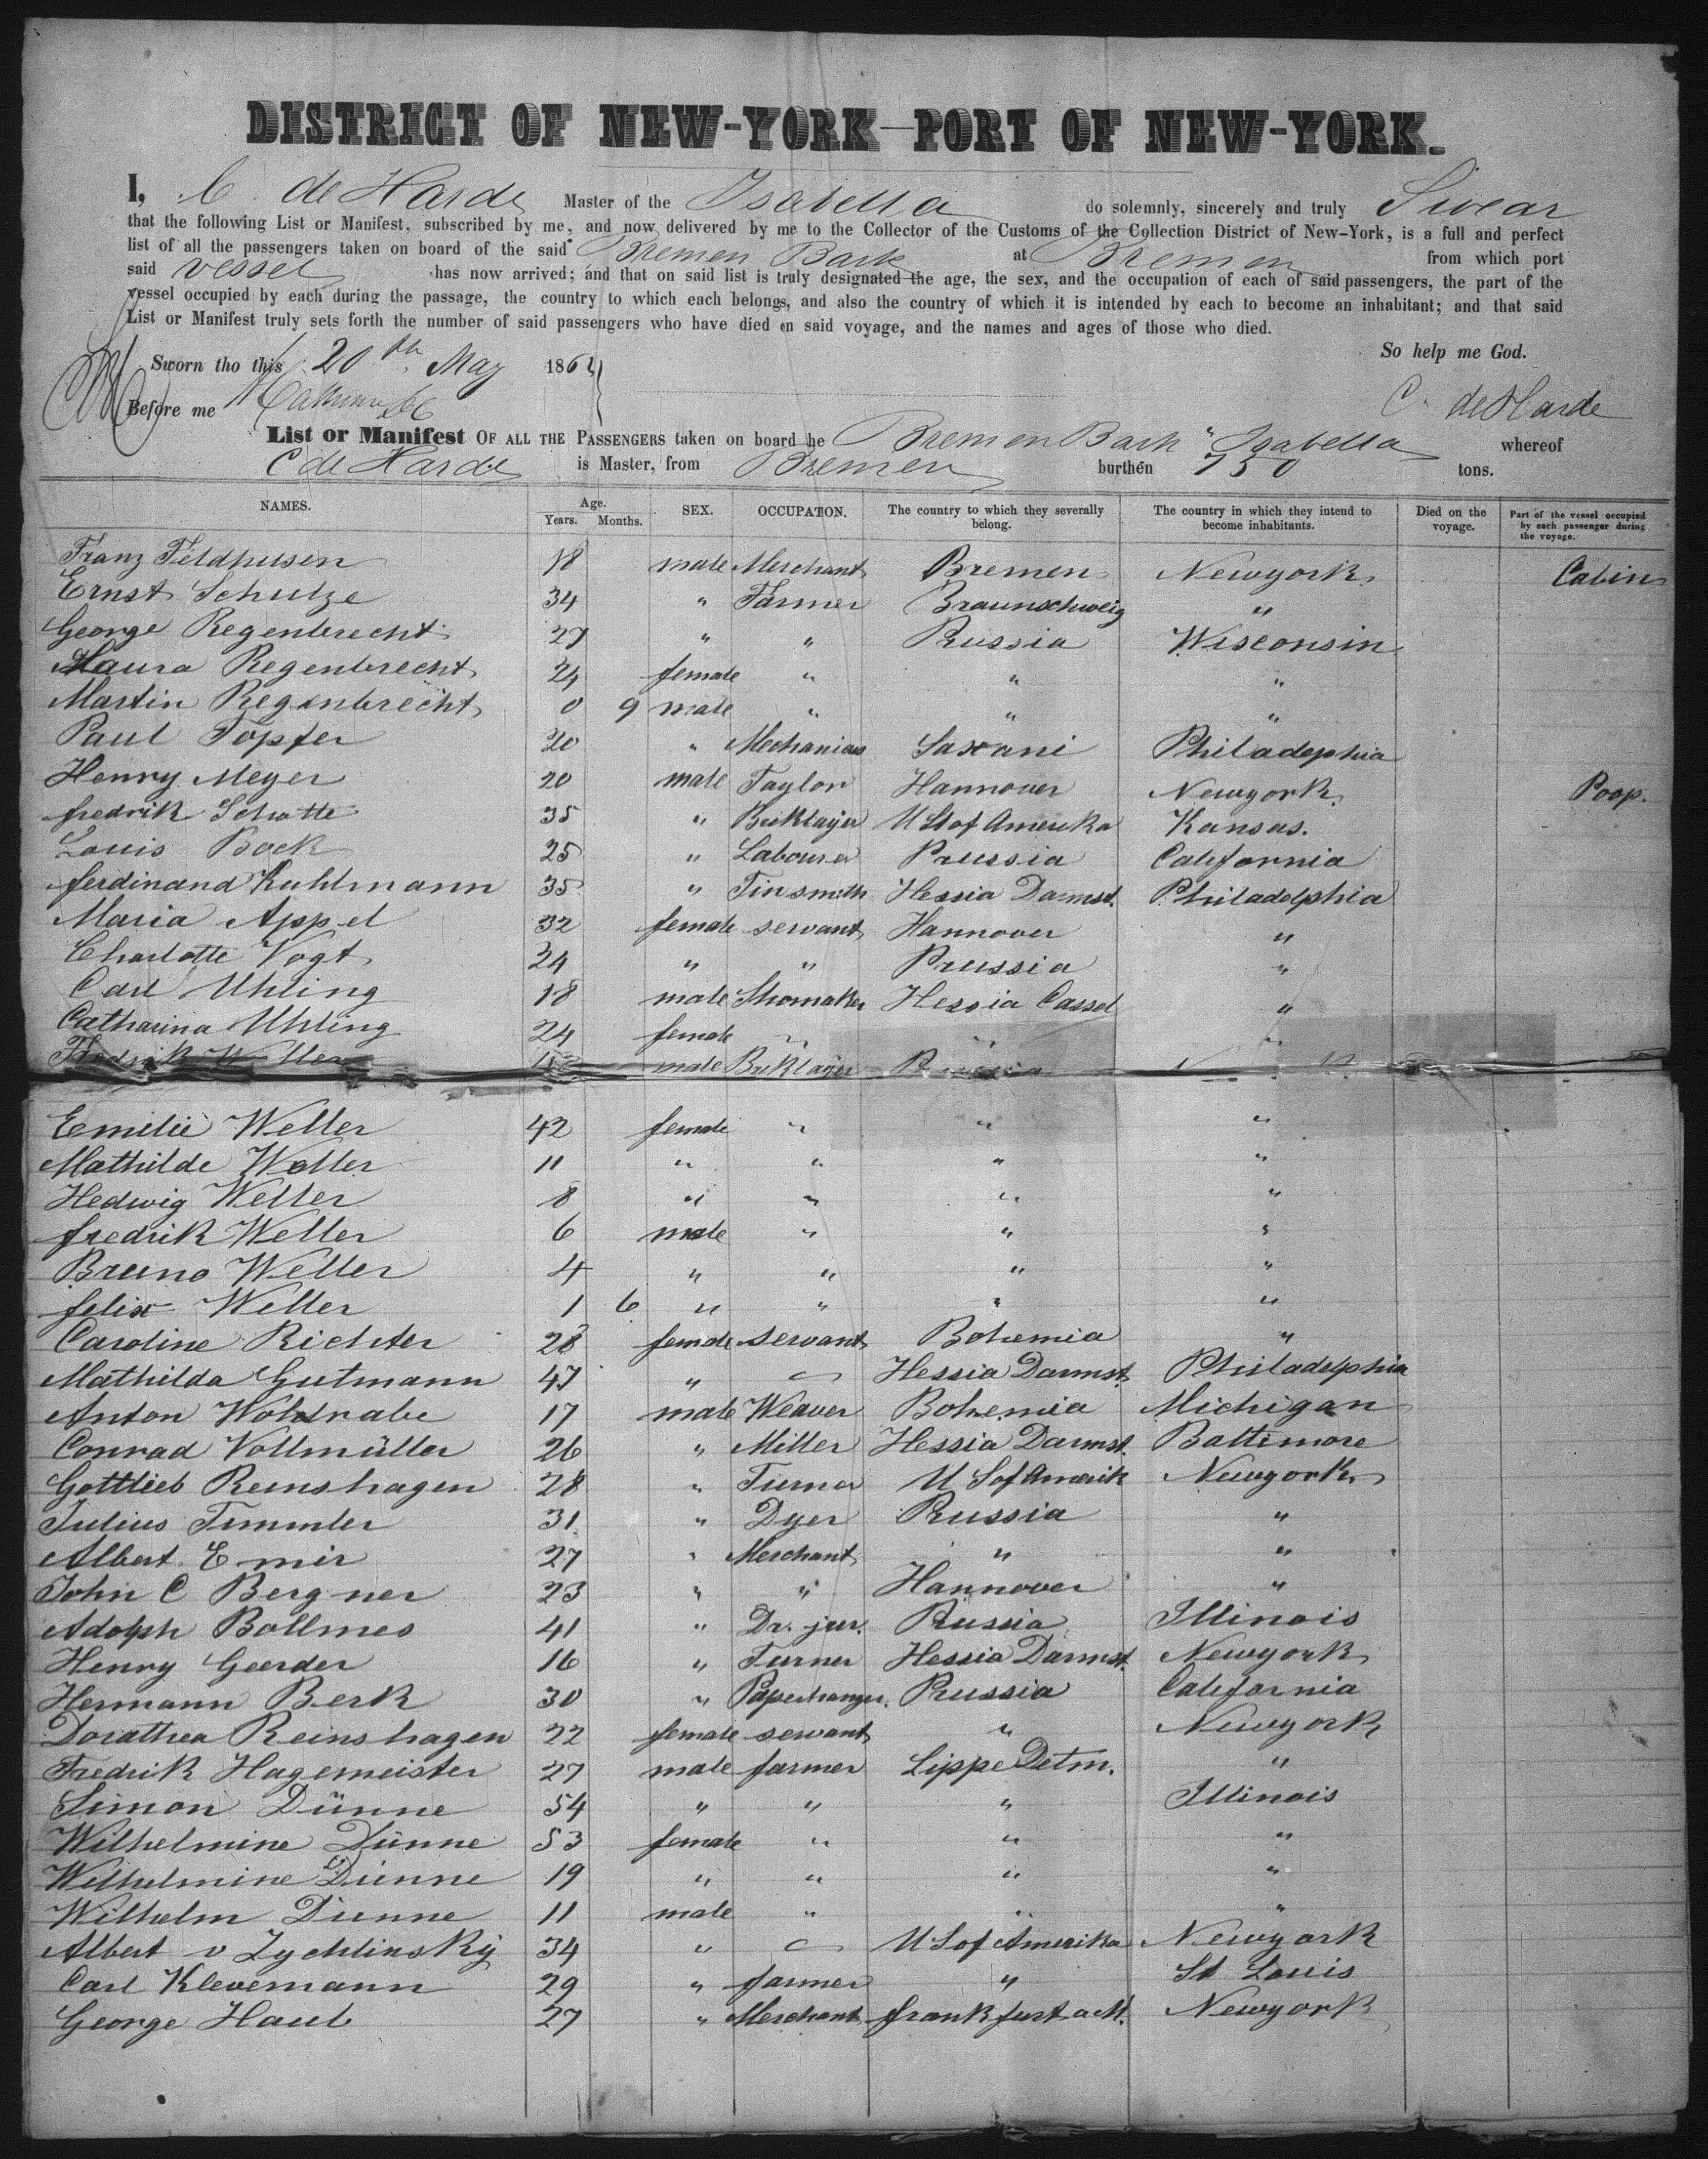 DISTRICT OF NEW-YORK—PORT OF NEW-YORK.
I, C. de Harde Master of the Isabella do solemnly, sincerely and truly Swear
that the following List or Manifest, subscribed by me, and now delivered by me to the Collector of the Customs of the Collection District of New-York, is a full and perfect
list of all the passengers taken on board of the said Bremen Bark at Bremen from which port
said vessel has now arrived; and that on said list is truly designated the age, the sex, and the occupation of each of said passengers, the part of the
vessel occupied by each during the passage, the country to which each belongs, and also the country of which it is intended by each to become an inhabitant; and that said
List or Manifest truly sets forth the number of said passengers who have died on said voyage, and the names and ages of those who died.
So help me God.
Sworn tho this 20th May 186
Before me
C. de Harde
List or Manifest OF ALL THE PASSENGERS taken on board he Bremen Bark "Isabella whereof
C de Harde is Master, from Bremen burthen 750 tons.
NAMES. Age. Years. Months. SEX. OCCUPATION. The country to which they severally belong. The country in which they intend to become inhabitants. Died on the voyage. Part of the vessel occupied by each passenger during the voyage.
Franz Feldhusen 18 male Merchant Bremen Newyork Cabin
Ernst Schulze 34 " Farmer Braunschweig "
George Regenbrecht 27 " " Russia Wisconsin
Laura Regenbrecht 24 female " " "
Martin Regenbrecht 0 9 male " " "
Paul Topfer 20 " Mechanicus Saxoni Philadephia
Henry Meyer 20 male Taylor Hannover Newyork Poop.
fredrik Schotte 35 " Bricklayer U St of Amerika Kansas.
Louis Bock 25 " Labourer Prussia California
ferdinand Kuhlmann 35 " Tinsmith Hessia Darmst. Philadelphia
Maria Appel 32 female servant Hannover "
Charlotte Vogt 24 " " Prussia "
Carl Uhling 18 male Shomaker Hessia Cassel "
Catharina Uhling 24 female " " "
Fredrik Weller male Bricklayer
Emilie Weller 42 female " " "
Mathilde Weller 11 " " " "
Hedwig Weller 8 " " " "
fredrik Weller 6 male " " "
Bruno Weller 4 " " " "
felix Weller 1 6 " " " "
Caroline Richter 28 female servant Bohemia "
Mathilda Gutmann 47 " " Hessia Darmst. Philadelphia
Anton Woldrabe 17 male Weaver Bohemia Michigan
Conrad Vollmüller 26 " Miller Hessia Darmst. Baltimore
Gottlieb Reinshagen 28 " Turner U S of Amerik Newyork
Julius Timmler 31 " Dyer Prussia "
Albert Emir 27 " Merchant " "
John C Bergner 23 " " Hannover "
Adolph Bollmes 41 " Dr. jur. Prussia Illinois
Henry Geerder 16 " Turner Hessia Darmst. Newyork
Hermann Berk 30 " Paperhanger. Prussia California
Dorathea Reinshagen 22 female servant " Newyork
Fredrik Hagemeister 27 male farmer Lippe Detm. "
Simon Dünne 54 " " " Illinois
Wilhelmine Dünne 53 female " " "
Wilhelmine Dünne 19 " " " "
Wilhelm Dünne 11 male " " "
Albert v Zychlinsky 34 " " U S of Amerika Newyork
Carl Klevemann 29 " farmer " St Louis
George Haub 27 " Merchant frankfurt a M. Newyork